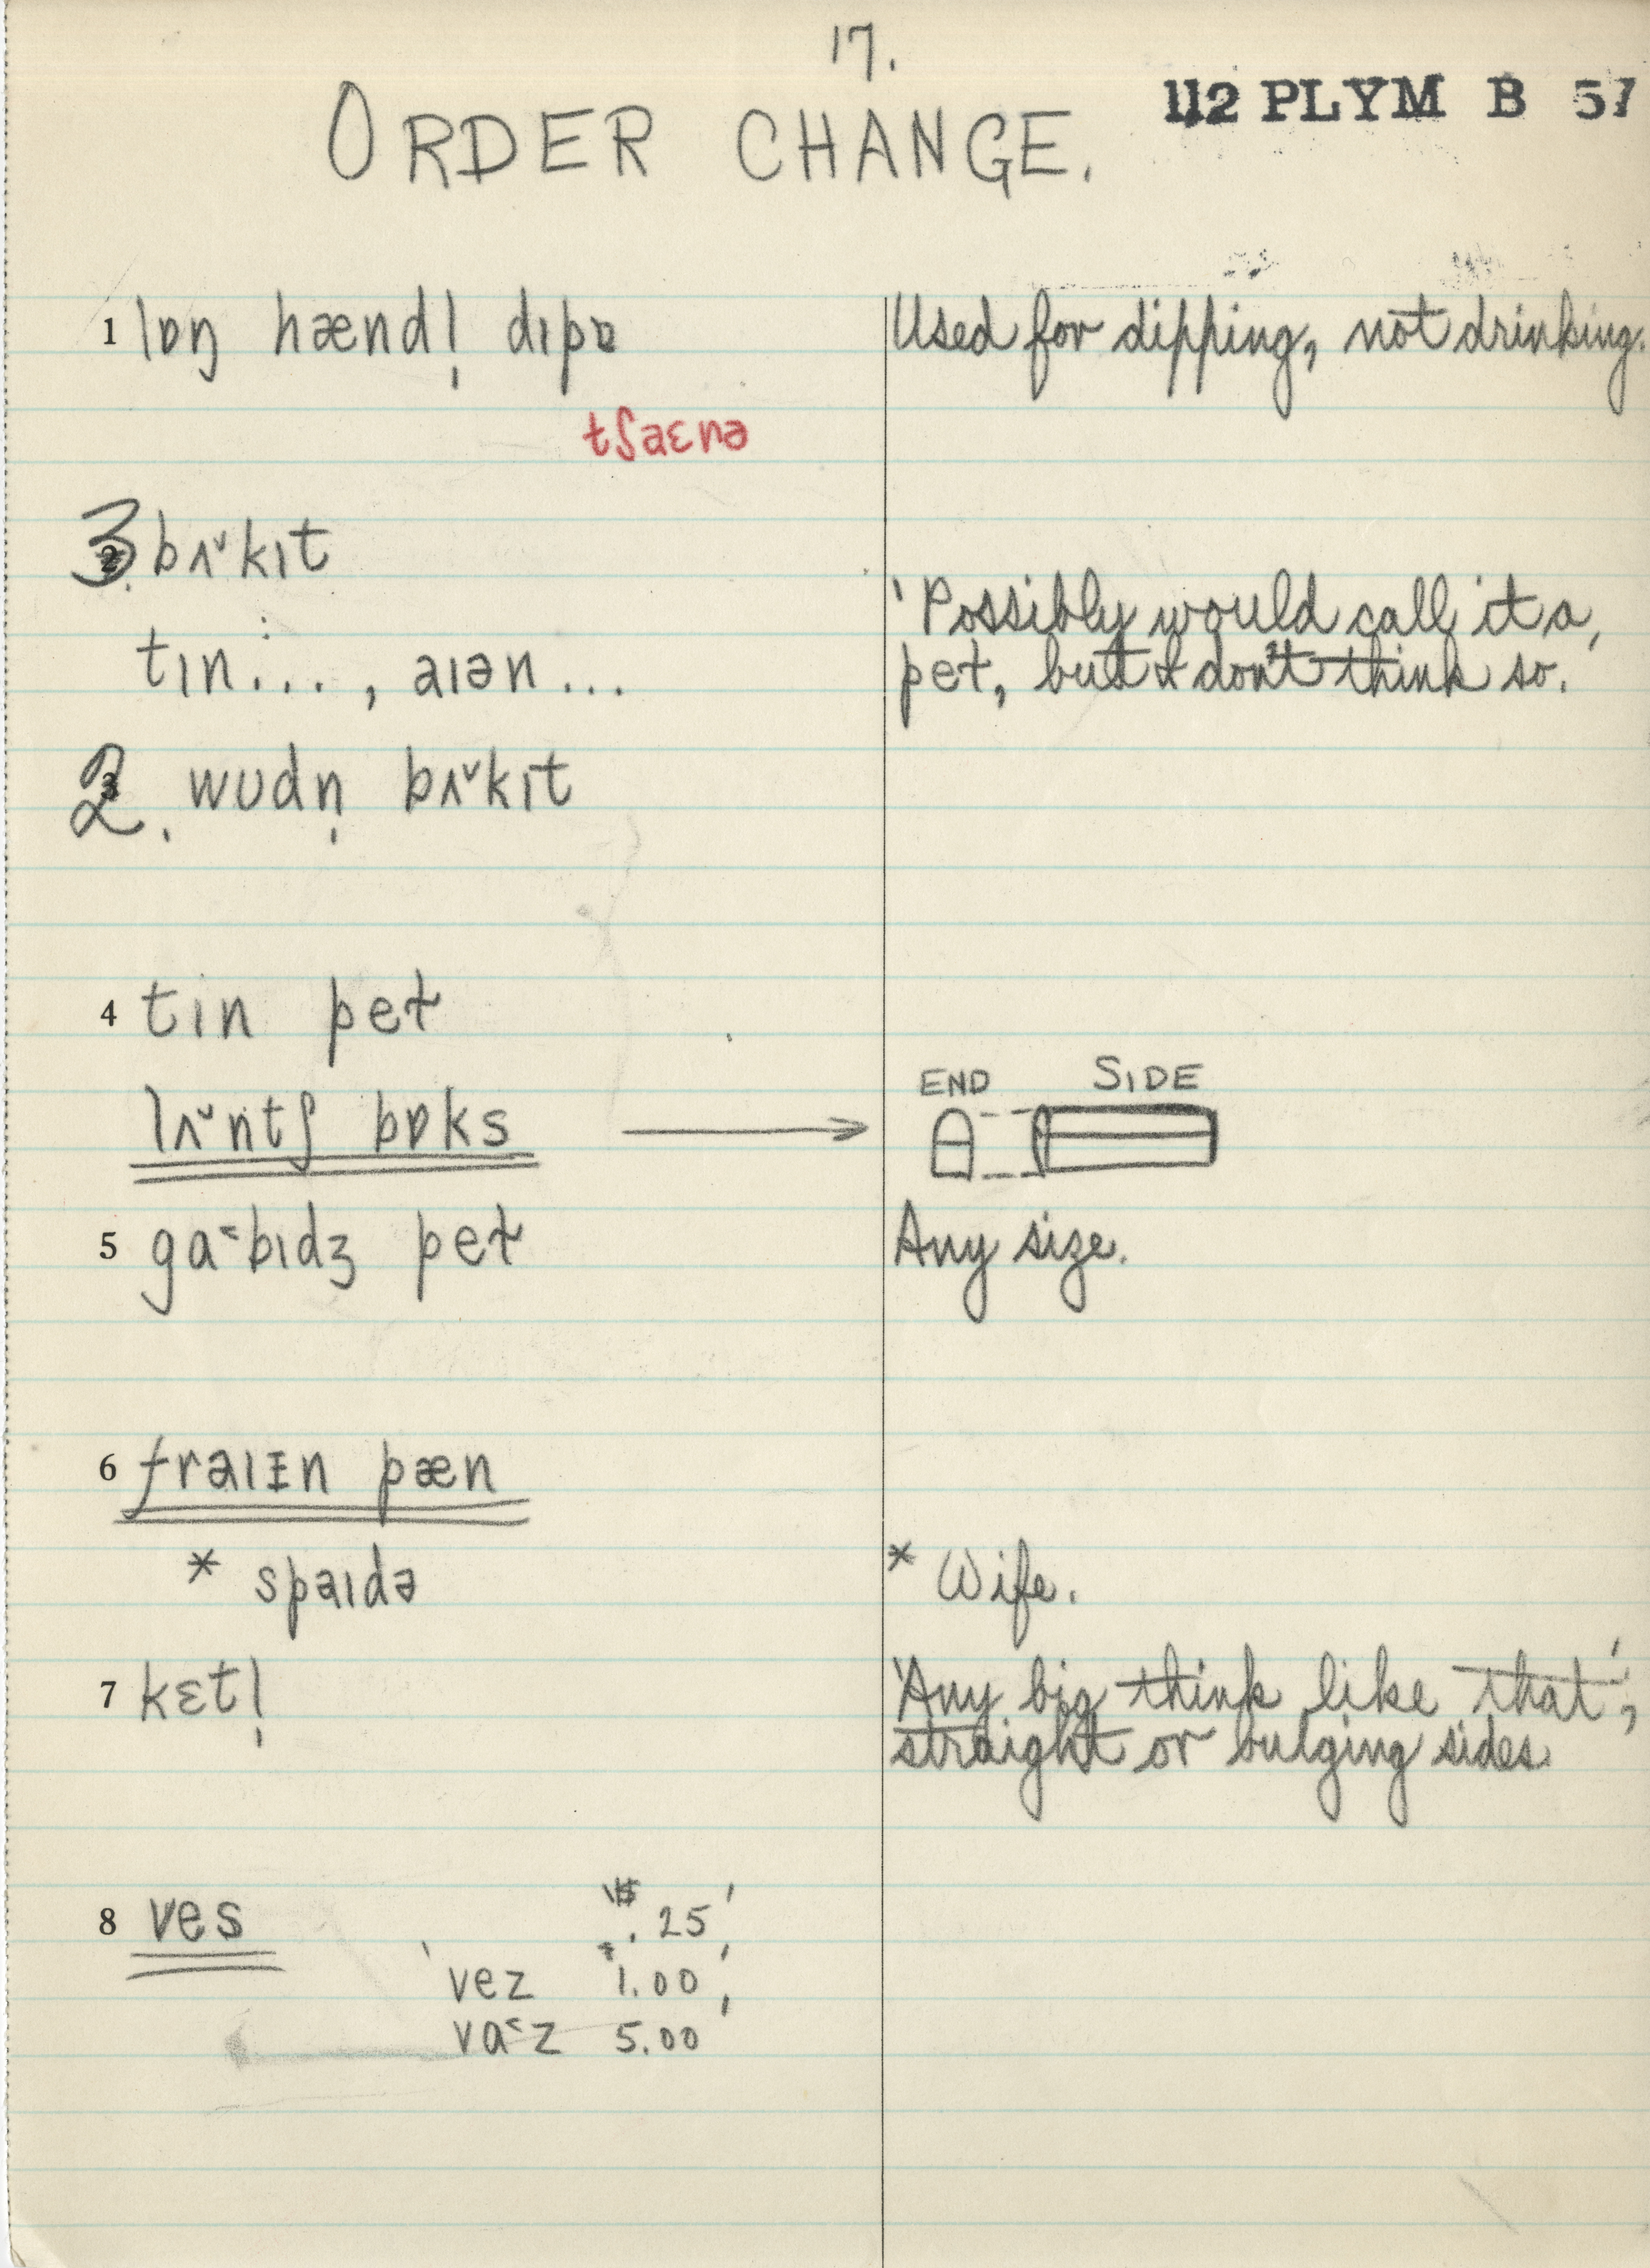 17.
112 PLYM B 57
ORDER CHANGE.
1 lɒŋ hændl̩ dɪpɒ Used for dipping, not drinking.
tʃaɛnə
3. bʌ˅kɪt
'Possibly would call it a
tɪn..., aɪən... pet, but I don't think so.'
2. wʊdn̩ bʌ˅kɪt
4 tɪn pet
END SIDE
lʌ˅ntʃ bɒks
5 ga˂bɪdʒ pet Any size.
6 fraɪɪn pæn
* spaɪdə * Wife.
7 kɛtl̩ 'Any big think like that',
straight or bulging sides.
8 ves '$ .25'
'vez 1.00',
va˂z 5.00